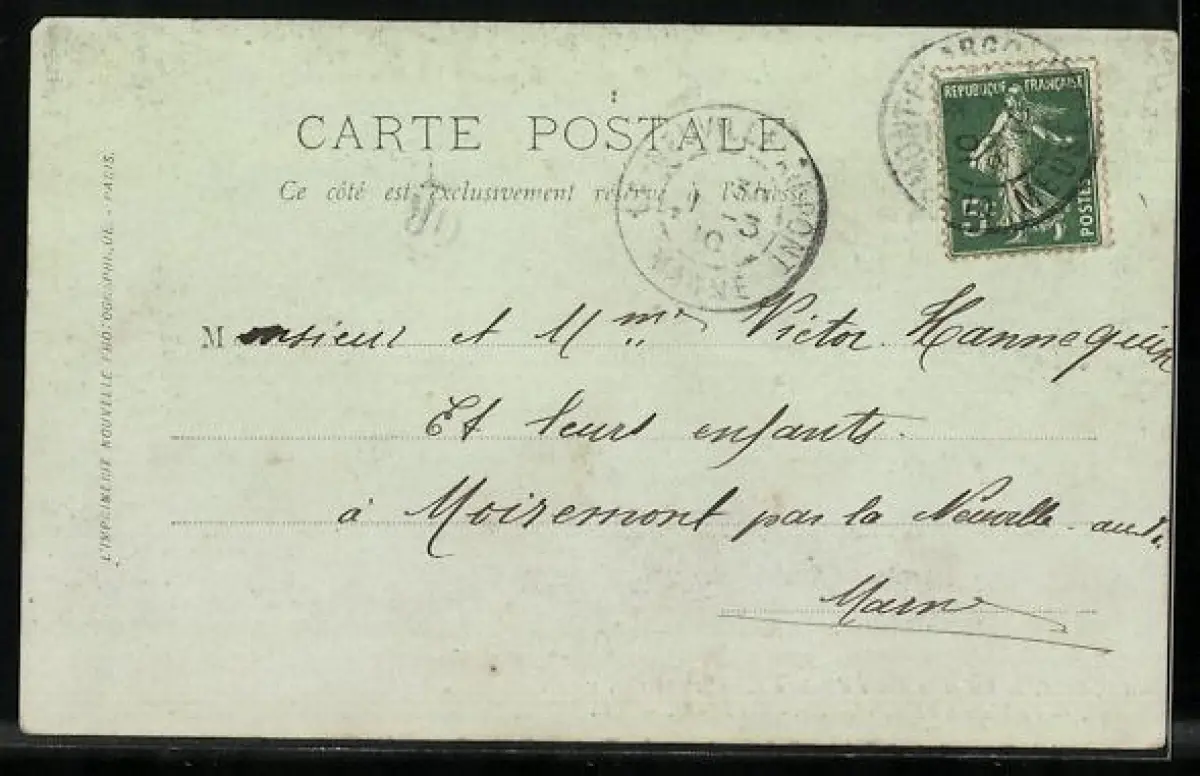 CARTE POSTALE
Ce côté est exclusivement réservé à l'adresse
REPUBLIQUE FRANÇAISE
5c
POSTES
MEUSE
L'IMPRIMERIE NOUVELLE PHOTOGRAPHIQUE - PARIS.
Monsieur et Mme Victor Hannequin
Et leurs enfants.
à Moiremont par la Neuville-au-
Marne